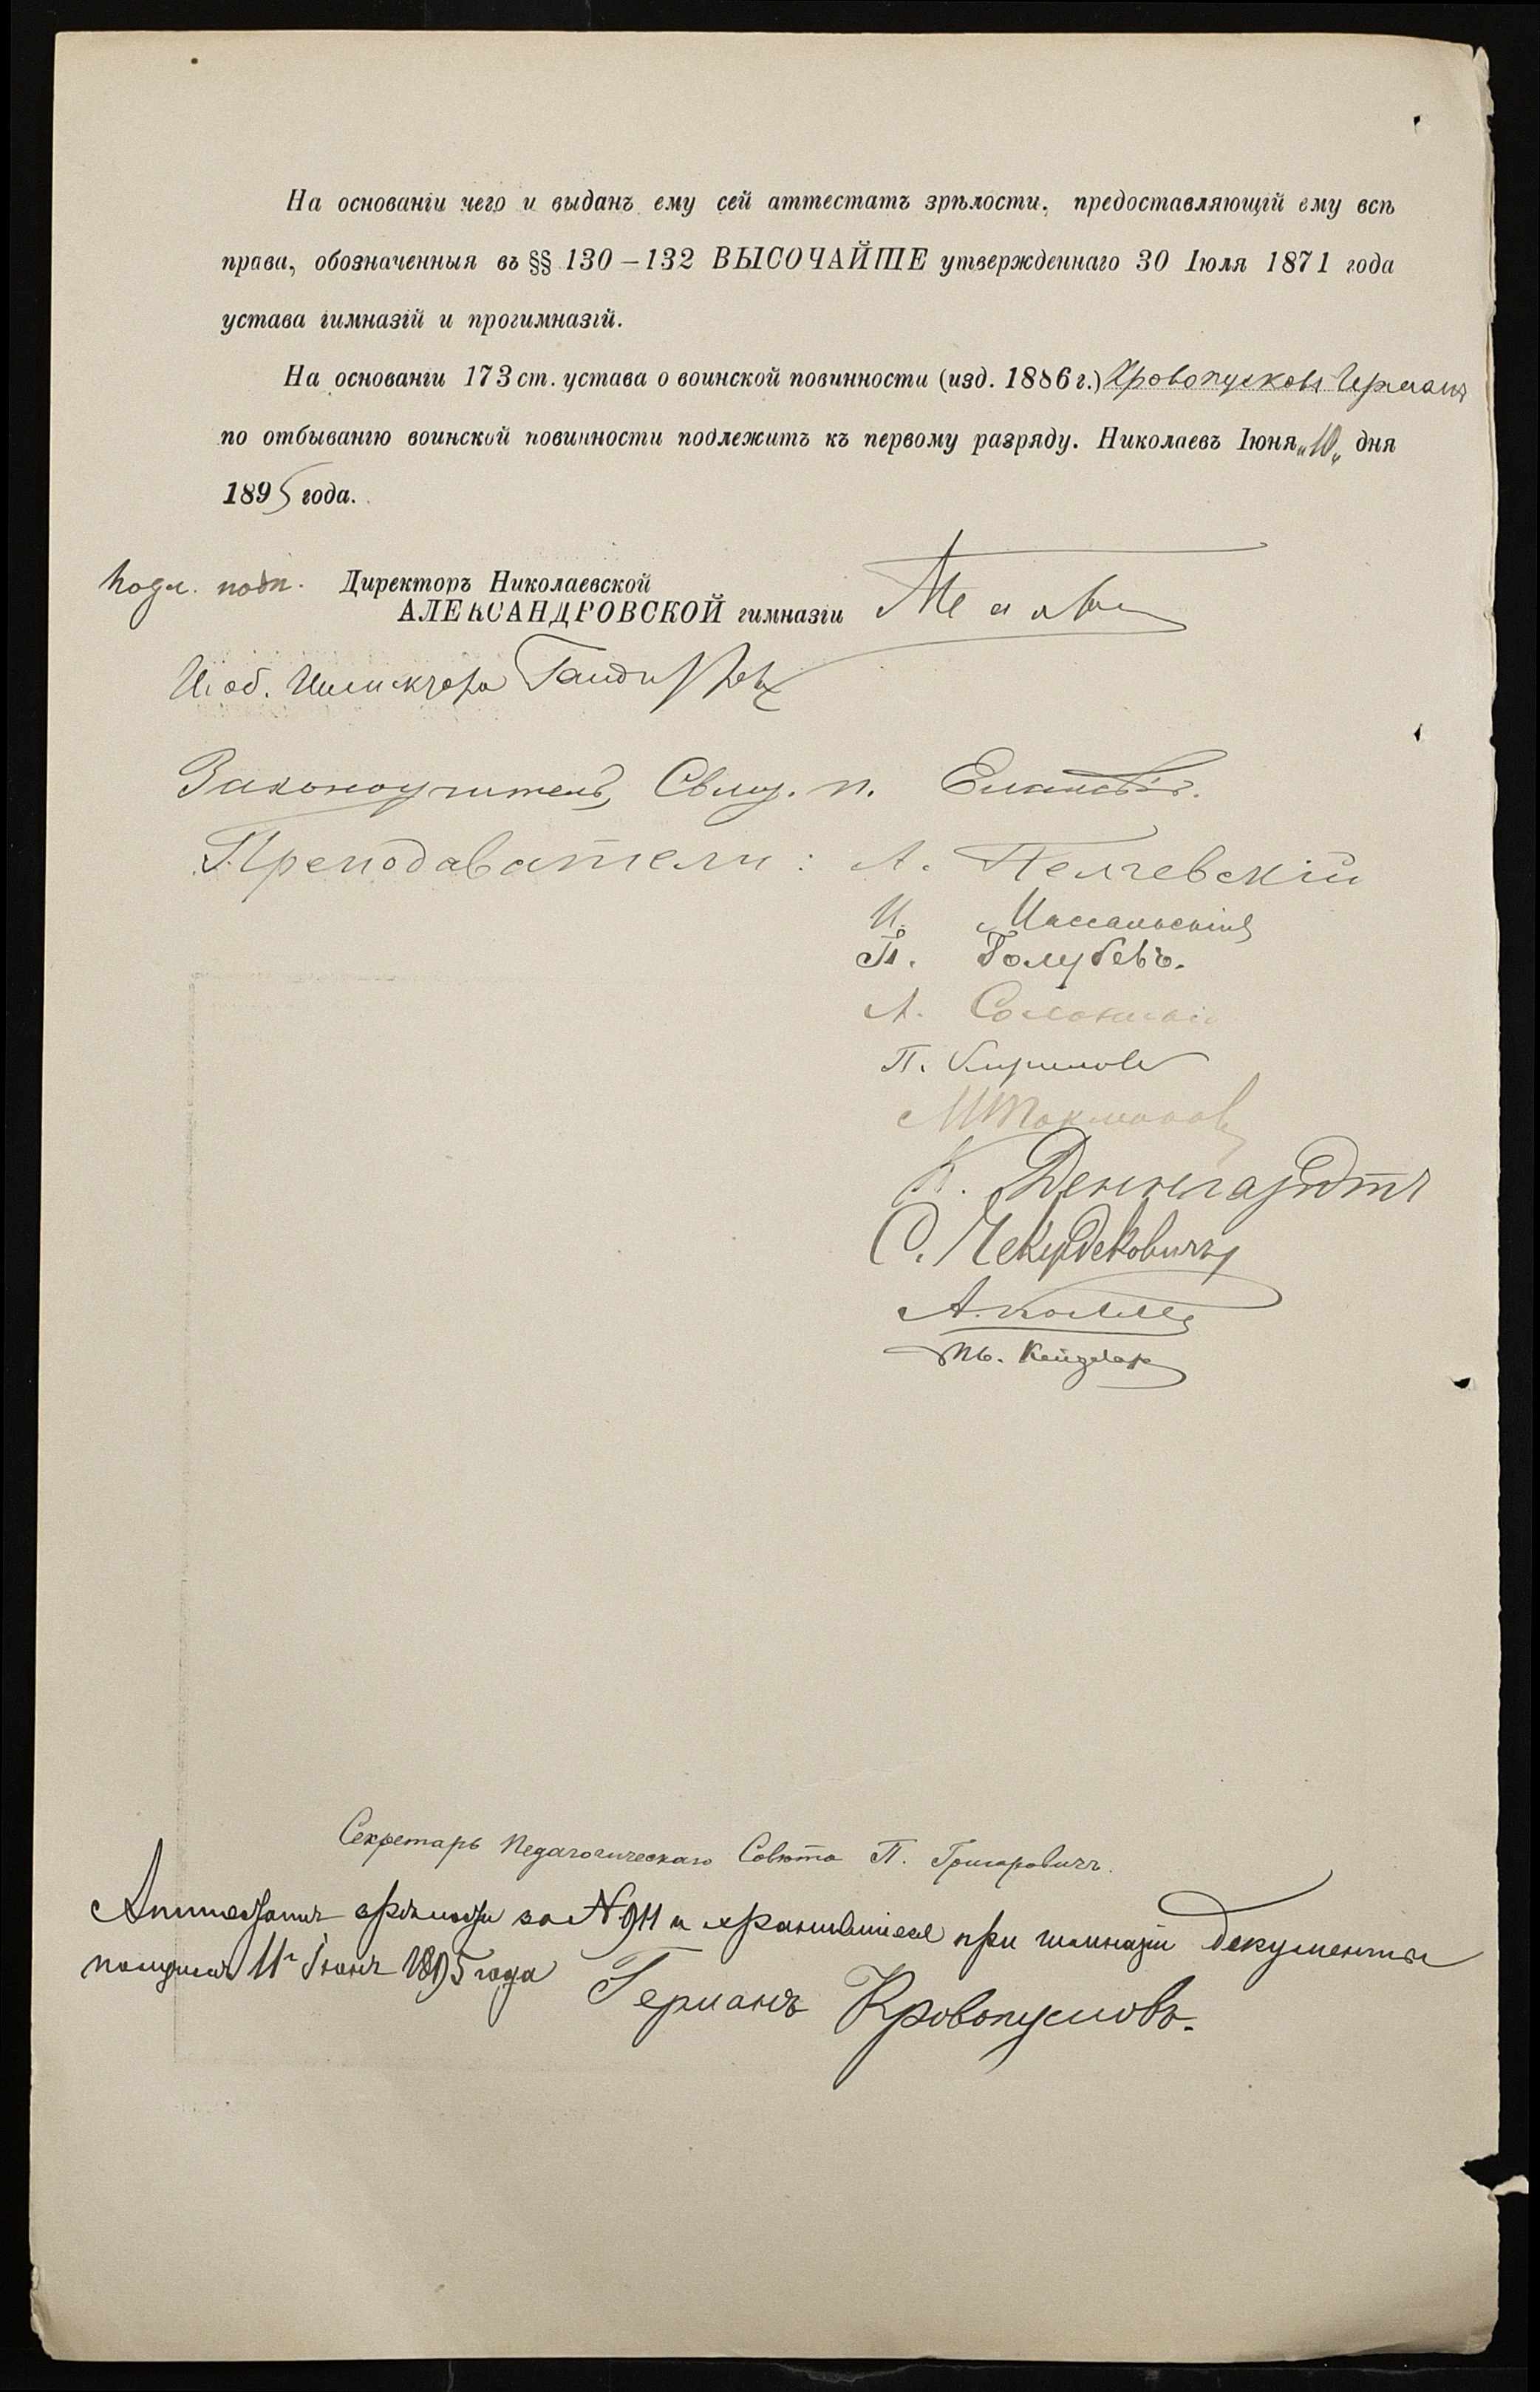 На основаніи чего и выданъ ему сей аттестатъ зрѣлости, предоставляющій ему всѣ
права, обозначенныя въ §§ 130—132 ВЫСОЧАЙШЕ утвержденнаго 30 Іюля 1871 года
устава гимназій и прогимназій.
На основаніи 173 ст. устава о воинской повинности (изд. 1886 г.) Кровопусковъ Германъ
по отбыванію воинской повинности подлежитъ къ первому разряду. Николаевъ Іюня „10„ дня
1895 года.
Подл. подп. Директоръ Николаевской
АЛЕКСАНДРОВСКОЙ гимназіи
И. об. Инспектора
Законоучитель, Свящ. п.
Преподаватели: А. Пелчевскій
И. Массальскій
П. Голубевъ.
А.
П. Кириловъ
М Токмаковъ
К. Деннгардтъ
С. Чекурдековичъ
А. Колле
Секретарь Педагогическаго Совѣта П. Григоровичъ.
Аттестатъ зрѣлости за № 911 и хранившіеся при гимназіи документы
получилъ 11го Іюня 1895 года Германъ Кровопусковъ.